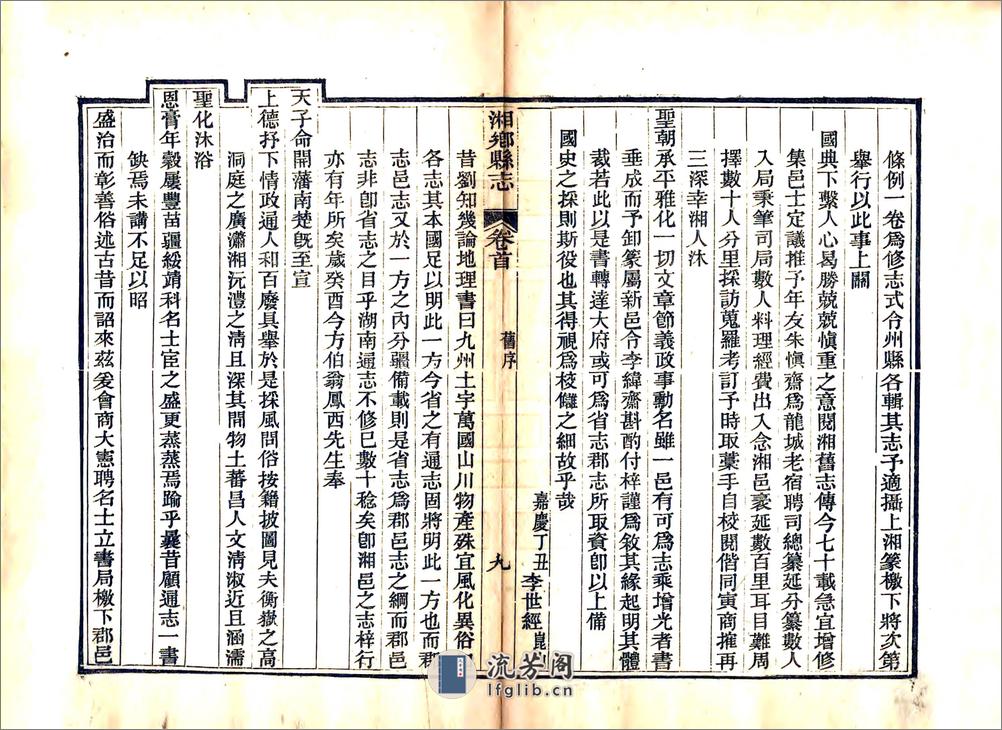 條例一卷爲修志式令州縣各輯其志予適攝上湘篆檄下將次第
舉行以此事上關
國典下繫人心曷勝兢兢愼重之意閱湘舊志傳今七十載急宜增修
集邑士定議推予年友朱愼齋爲龍城老宿聘司總纂延分纂數人
入局秉筆司局數人料理經費出入念湘邑袤延數百里耳目難周
擇數十人分里採訪蒐羅考訂予時取藁手自校閱偕同寅商搉再
三深幸湘人沐
聖朝承平雅化一切文章節義政事勳名雖一邑有可爲志乘增光者書
垂成而予卸篆屬新邑令李緯齋斟酌付梓謹爲敘其緣起明其體
裁若此以是書轉達大府或可爲省志郡志所取資卽以上備
國史之採則斯役也其得視爲枝讎之細故乎哉
嘉慶丁丑李世經
湘鄉縣志 卷首 舊序 九
昔劉知幾論地理書曰九州土宇萬國山川物產殊宜風化異俗
各志其本國足以明此一方今省之有通志固將明此一方也而郡
志邑志又於一方之內分疆備載則是省志爲郡邑志之綱而郡邑
志非卽省志之目乎湖南通志不修已數十稔矣卽湘邑之志梓行
亦有年所矣歲癸酉今方伯翁鳳西先生奉
天子命開藩南楚旣至宣
上德抒下情政通人和百廢具舉於是採風問俗按籍披圖見夫衡嶽之高
洞庭之廣瀟湘沅澧之淸且深其閒物土蕃昌人文淸淑近且涵濡
聖化沐浴
恩膏年穀屢豐苗疆綏靖科名士宦之盛更蒸蒸焉踰乎曩昔顧通志一書
缺焉未講不足以昭
盛治而彰善俗述古昔而詔來茲爰會商大憲聘名士立書局檄下郡邑
流芳阁
lfglib.cn